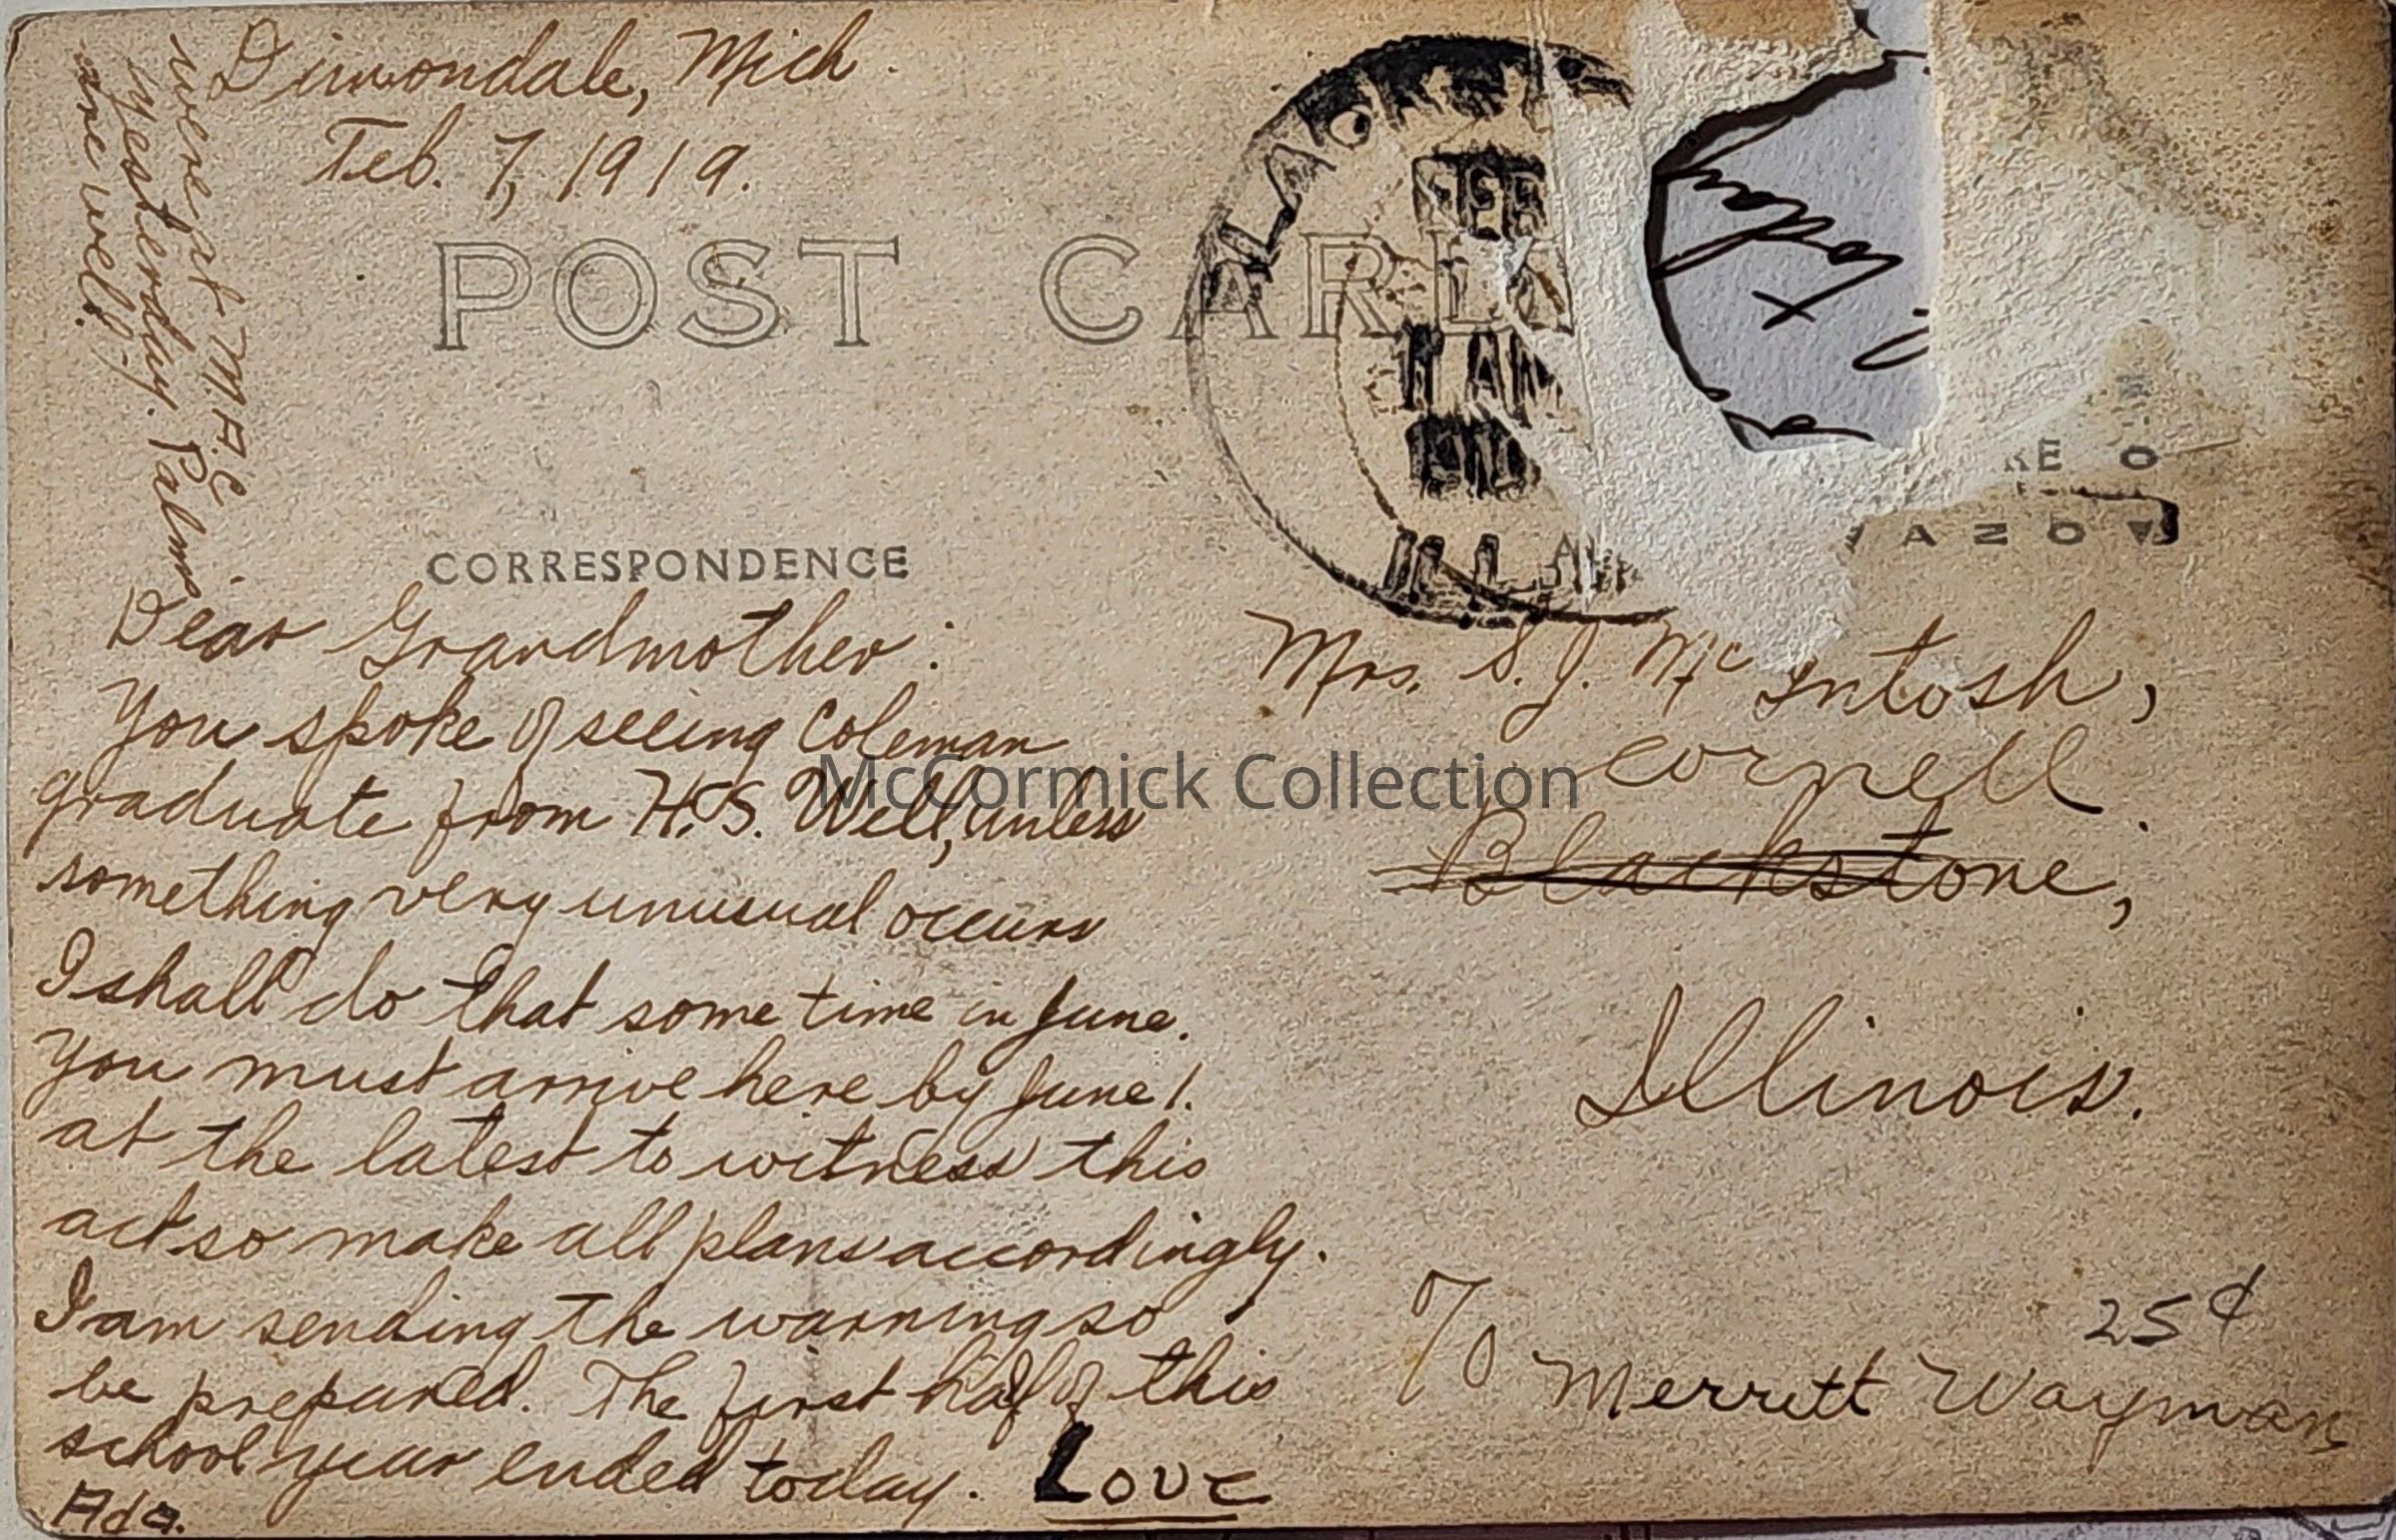 Dimondale, Mich.
Feb. 7, 1919.
POST CARD
CORRESPONDENCE
Dear Grandmother:
You spoke of seeing Coleman
graduate from H.S. Well, unless
something very unusual occurs
I shall do that some time in June.
You must arrive here by June 1.
at the latest to witness this
act so make all plans accordingly.
I am sending the warning so
be prepared. The first half of this
school year ended today. Love
Ada.
were at M.A.C
yesterday. Palms
are well.
ILL
RE O
AZO
Mrs. S. J. McIntosh,
Cornell
Blackstone,
Illinois.
25¢
c/o Merritt Wayman
McCormick Collection